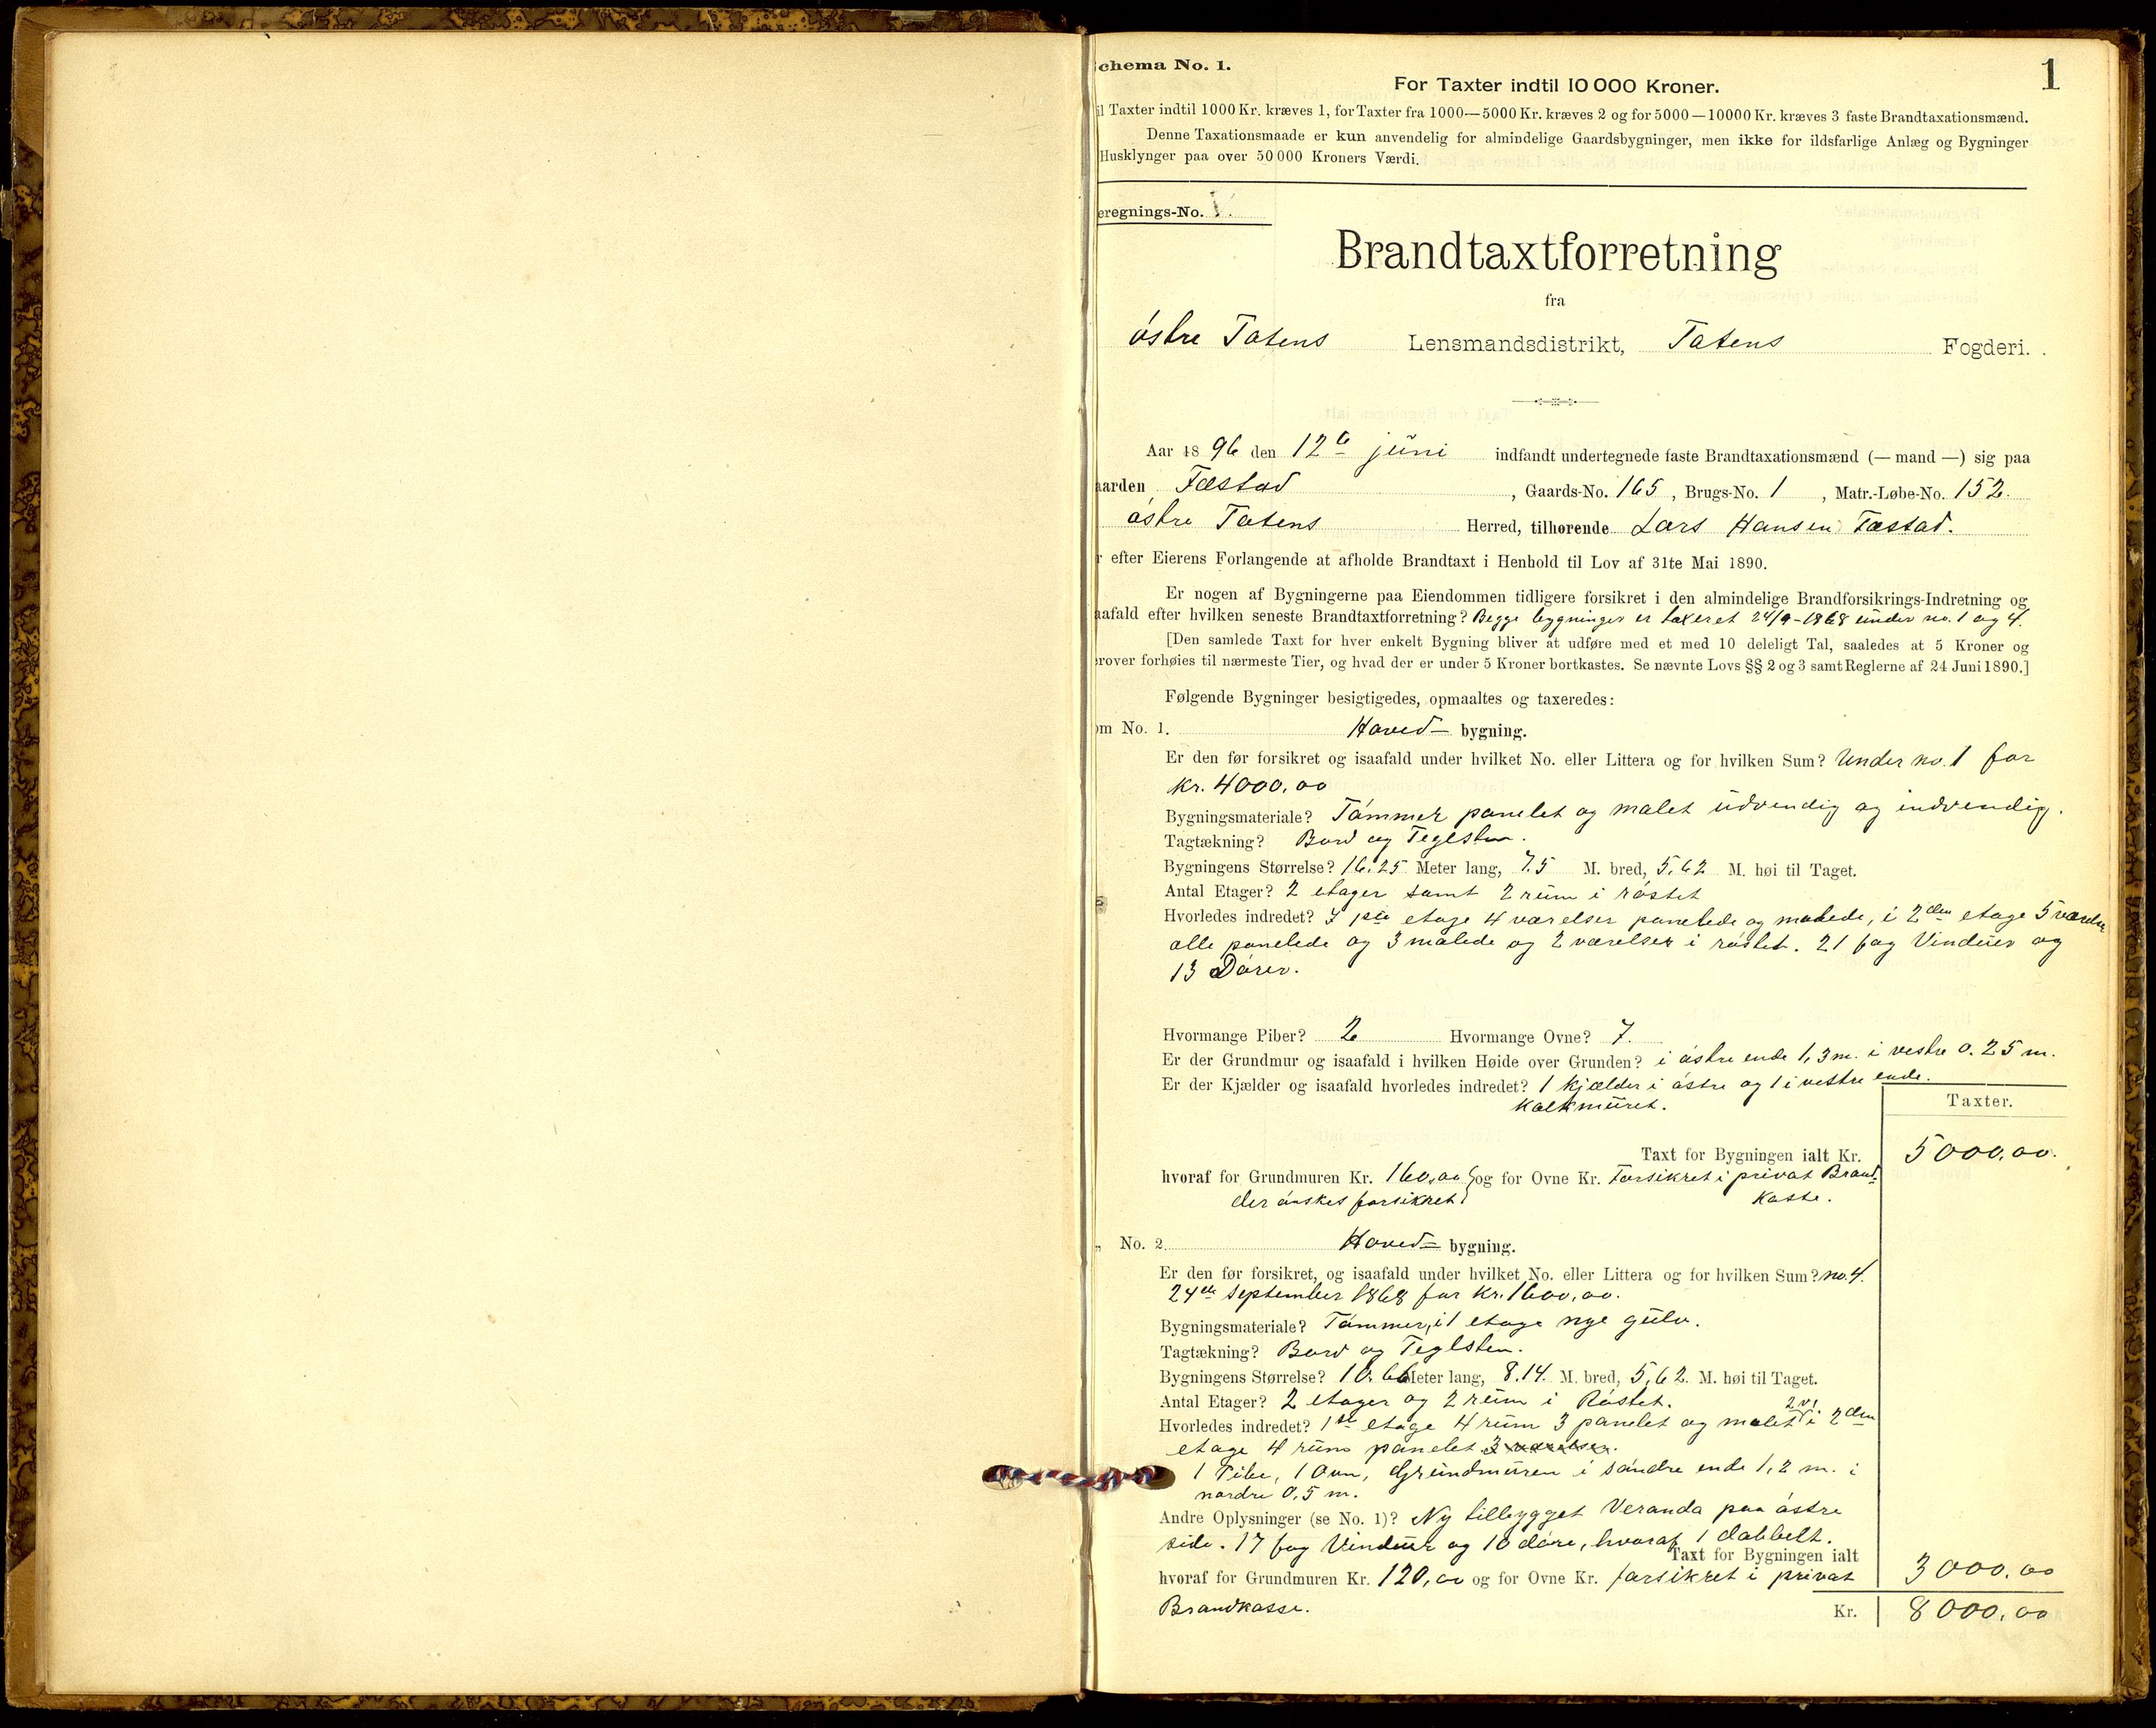 chema No. 1.
1
For Taxter indtil 10 000 Kroner.
il Taxter indtil 1000 Kr. kræves 1, for Taxter fra 1000—5000 Kr. kræves 2 og for 5000—10000 Kr. kræves 3 faste Brandtaxationsmænd.
Denne Taxationsmaade er kun anvendelig for almindelige Gaardsbygninger, men ikke for ildsfarlige Anlæg og Bygninger
Husklynger paa over 50 000 Kroners Værdi.
eregnings-No.
Brandtaxtforretning
fra
østre Totens Lensmandsdistrikt, Totens Fogderi.
Aar 1896 den 12te juni indfandt undertegnede faste Brandtaxationsmænd (— mand —) sig paa
aarden Tæstad, Gaards-No. 165, Brugs-No. 1, Matr.-Løbe-No. 152.
østre Totens Herred, tilhørende Lars Hansen Tæstad.
r efter Eierens Forlangende at afholde Brandtaxt i Henhold til Lov af 31te Mai 1890.
Er nogen af Bygningerne paa Eiendommen tidligere forsikret i den almindelige Brandforsikrings-Indretning og
aafald efter hvilken seneste Brandtaxtforretning? Begge bygninger er taxeret 24/9-1868 under no. 1 og 4.
[Den samlede Taxt for hver enkelt Bygning bliver at udføre med et med 10 deleligt Tal, saaledes at 5 Kroner og
erover forhøies til nærmeste Tier, og hvad der er under 5 Kroner bortkastes. Se nævnte Lovs §§ 2 og 3 samt Reglerne af 24 Juni 1890.]
Følgende Bygninger besigtigedes, opmaaltes og taxeredes:
om No. 1. Hoved- bygning.
Er den før forsikret og isaafald under hvilket No. eller Littera og for hvilken Sum? Under no. 1 for
kr. 4000,00
Bygningsmateriale? Tømmer panelet og malet udvendig og indvendig.
Tagtækning? Bord og Teglsten.
Bygningens Størrelse? 16.25 Meter lang, 7.5 M. bred, 5,62 M. høi til Taget.
Antal Etager? 2 etager samt 2 rum i røstet
Hvorledes indredet? I 1ste etage 4 værelser panelede og malede, i 2den etage 5 værelser
alle panelede og 3 malede og 2 værelser i røstet. 21 fag Vinduer og
13 Dører.
Hvormange Piber? 2 Hvormange Ovne? 7.
Er der Grundmur og isaafald i hvilken Høide over Grunden? i østre ende 1,3 m. i vestre 0.25 m.
Er der Kjælder og isaafald hvorledes indredet? 1 kjælder i østre og 1 i vestre ende.
kalkmuret.
Taxter.
Taxt for Bygningen ialt Kr. 5000,00.
hvoraf for Grundmuren Kr. 160,00 og for Ovne Kr. Forsikret i privat Brand-
der ønskes forsikret kasse.
„ No. 2. Hoved- bygning.
Er den før forsikret, og isaafald under hvilket No. eller Littera og for hvilken Sum? no. 4.
24de September 1868 for kr. 1600,00.
Bygningsmateriale? Tømmer, i 1 etage nye gulv.
Tagtækning? Bord og Teglsten.
Bygningens Størrelse? 10.66 Meter lang, 8.14. M. bred, 5,62. M. høi til Taget.
Antal Etager? 2 etager og 2 rum i Røstet.
Hvorledes indredet? 1ste etage 4 rum 3 panelet og malet i 2den
etage 4 rum panelet 3 værelser.
1 Pibe, 1 Ovn, Grundmuren i søndre ende 1,2 m. i
nordre 0,5 m.
Andre Oplysninger (se No. 1)? Ny tilbygget Veranda paa østre
side. 17 fag Vinduer og 10 døre, hvoraf 1 dobbelt.
Taxt for Bygningen ialt 3000,00
hvoraf for Grundmuren Kr. 120,00 og for Ovne Kr. forsikret i privat
Brandkasse.
Kr. 8000,00